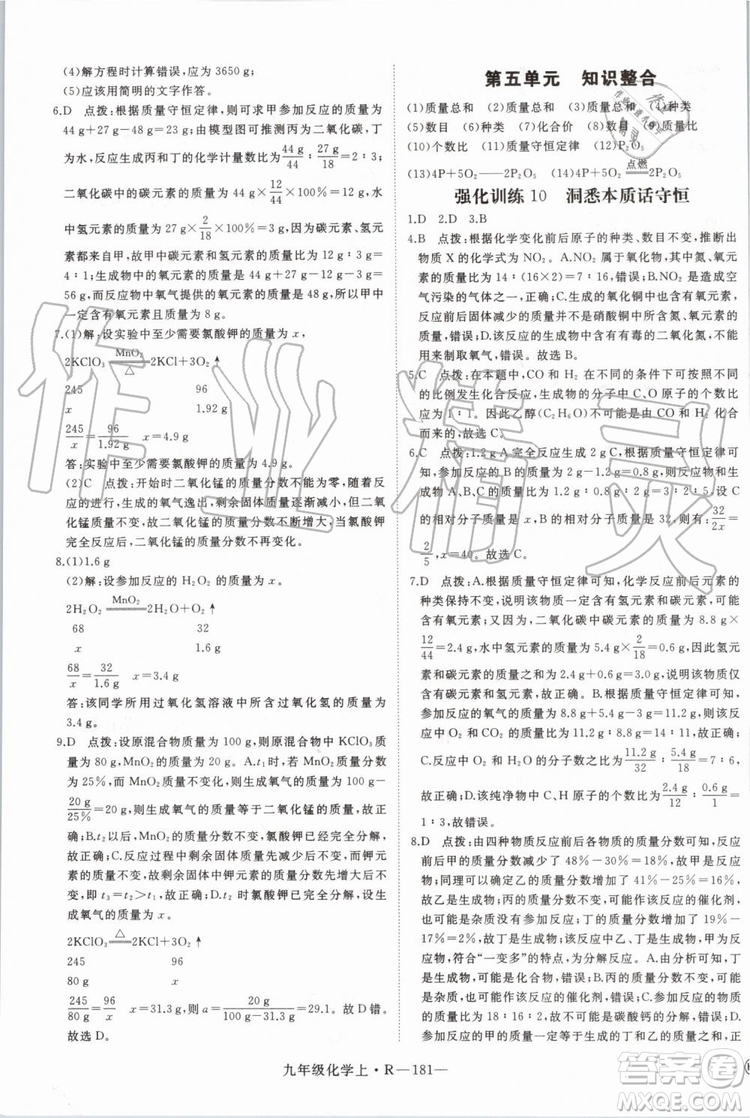 (4)解方程时计算错误,应为 3650 g;
(5)应该用简明的文字作答。
6.D 点拨:根据质量守恒定律,参加反应的氧气质量为
44 g+27 g-23 g=48 g;由模型图可知二氧化碳中
碳元素与氧元素的质量比为12∶(16×2)=3∶8;二氧
化碳中的碳元素的质量为 44 g×12/44=12 g,
水中氢元素的质量为 27 g×2/18=3 g,因为碳元素、氢元
素都来自甲,故甲中碳氢质量比为 12 g∶3 g=
4∶1;生成物中的氧元素的质量为 44 g+27 g-12 g-3 g=
56 g,其中氧气提供的氧元素的质量为 48 g,所以甲中一
定含有氧元素且质量为 8 g。
7.(1)解:设实验中至少需要氯酸钾的质量为 x,
2KClO₃ MnO₂ △ 2KCl+3O₂↑
245 96
x 1.92 g
245/x=96/1.92 g x=4.9 g
答:实验中至少需要氯酸钾的质量为 4.9 g。
(2)C 点拨:开始时二氧化锰的质量分数不为零,随着
反应的进行,氧气逸出,剩余固体质量逐渐减小,但二氧
化锰的质量不变,故其质量分数不断增大,当氯酸钾
完全分解后,二氧化锰的质量分数不再变化。
8.(1)1.6 g
(2)解:设参加反应的 H₂O₂ 的质量为 x,
2H₂O₂ MnO₂ 2H₂O+O₂↑
68 32
x 1.6 g
68/x=32/1.6 g x=3.4 g
答:该同学所用过氧化氢溶液中过氧化氢的质量为
3.4 g。
9.D 点拨:设原混合物质量为 100 g,则原混合物中 KClO₃
质量为 80 g,MnO₂ 的质量为 20 g。A.t₁ 时,若 MnO₂ 质量
分数为 25%,而 MnO₂ 的质量不变,此时固体的质量为
20 g/25%=80 g,所以生成氧气的质量等于二氧化锰的质量,
故正确;B.t₂ 以后,二氧化锰的质量分数不变,氯酸钾完
全分解,故正确;C.反应过程中剩余固体质量先减少后不变,
故正确;C.反应过程中剩余固体质量减少而钾元素
质量不变,故 a=t₂>t₁,故正确;D.t₂ 时氯酸钾完全反应,设
生成氧气的质量为 x。
2KClO₃ △ 2KCl+3O₂↑
245 96
80 g x
245/80 g=96/x x=31.3 g,故 a=20 g/(100 g-31.3 g)×100=29.1。故 D 错。
故选 D。
第五单元 知识整合
(1)质量总和 (2)质量总和 (3)种类 (4)种类
(5)数目 (6)种类 (7)化合价 (8)数目 (9)质量
(10)质量比 (11)质量守恒定律 (12)P₂O₅
(13)4P+5O₂——2P₂O₅ (14)4P+5O₂ 点燃 2P₂O₅
强化训练 10 洞悉本质话守恒
1.D 2.D 3.B
4.B 点拨:根据化学变化前后原子的种类、数目不变,推断出
物质 X 的化学式为 NO₂。A.属于氧化物,其中氮、氧元素
质量比为 14∶(16×2)=7∶16,错误;B.NO₂ 是造成空气
污染的气体之一,正确;C.生成的氧化铜中铜元素的质量
分数高,错误;D.生成物中含有有毒的二氧化氮,不能
用来制取氧气,错误。故选 B。
5.C 点拨:在本题中,CO 和 H₂ 在不同的条件下可按不同
的比例发生化合反应,生成物的分子中 C、O 原子的个数比
为 1∶1,因此乙醇(C₂H₆O)不可能是生成物,故选 C。
6.C 点拨:1.2 g A 完全反应生成 2 g C,根据质量守恒定律可知
A、B、C的质量比为 1.2 g∶0.8 g∶2 g=3∶2∶5,设 C
的相对分子质量为 x,根据反应的质量比可知:32/2x=
2/5,x=40。故选 C。
7.D 点拨:A.根据质量守恒定律可知,化学反应前后元素的
种类保持不变,二氧化碳和水中含有氢元素和碳元素,
故该纯净物一定含有氢元素和碳元素,二氧化碳中碳元素的质量为 8.8 g×
12/44=2.4 g,水中氢元素的质量为 5.4 g×2/18=0.6 g,氢
元素和碳元素的质量和为 3 g,说明该纯净物中还含有氧
元素和碳元素,不含氧元素,错误;B.根据质量守恒定律可知,参
加反应的氧气的质量为 8.8 g+5.4 g-3 g=11.2 g,错误;
C.反应中 O₂ 和 H₂O 的分子个数比为 11.2 g/32∶5.4 g/18=
7∶6,错误;D.该纯净物中 C、H 原子的个数比为 2.4 g/12∶0.6 g/1=
1∶3,正确。故选 D。
8.D 点拨:由四种物质反应前后各物质的质量分数可知,
反应前后甲的质量分数减少了 48%-30%=18%,故是反
应物;同理可以确定丁的质量分数增加了 19%-
17%=2%,是生成物;丙可能是该反应的催化剂,也可能
是不参加反应的杂质,该反应的反应物为甲,生成物为
乙和丁,符合“一变多”的特点,为分解反应。A.由分析可知,丁
是生成物,不可能为单质,错误;B.反应为分解反应,
不是化合反应,错误;C.丙可能是该反应的催化剂,错误;D.
生成的丁和乙的质量比为 2%∶16%=1∶8,正确。故选 D。
九年级化学上·R—181—
作业精灵